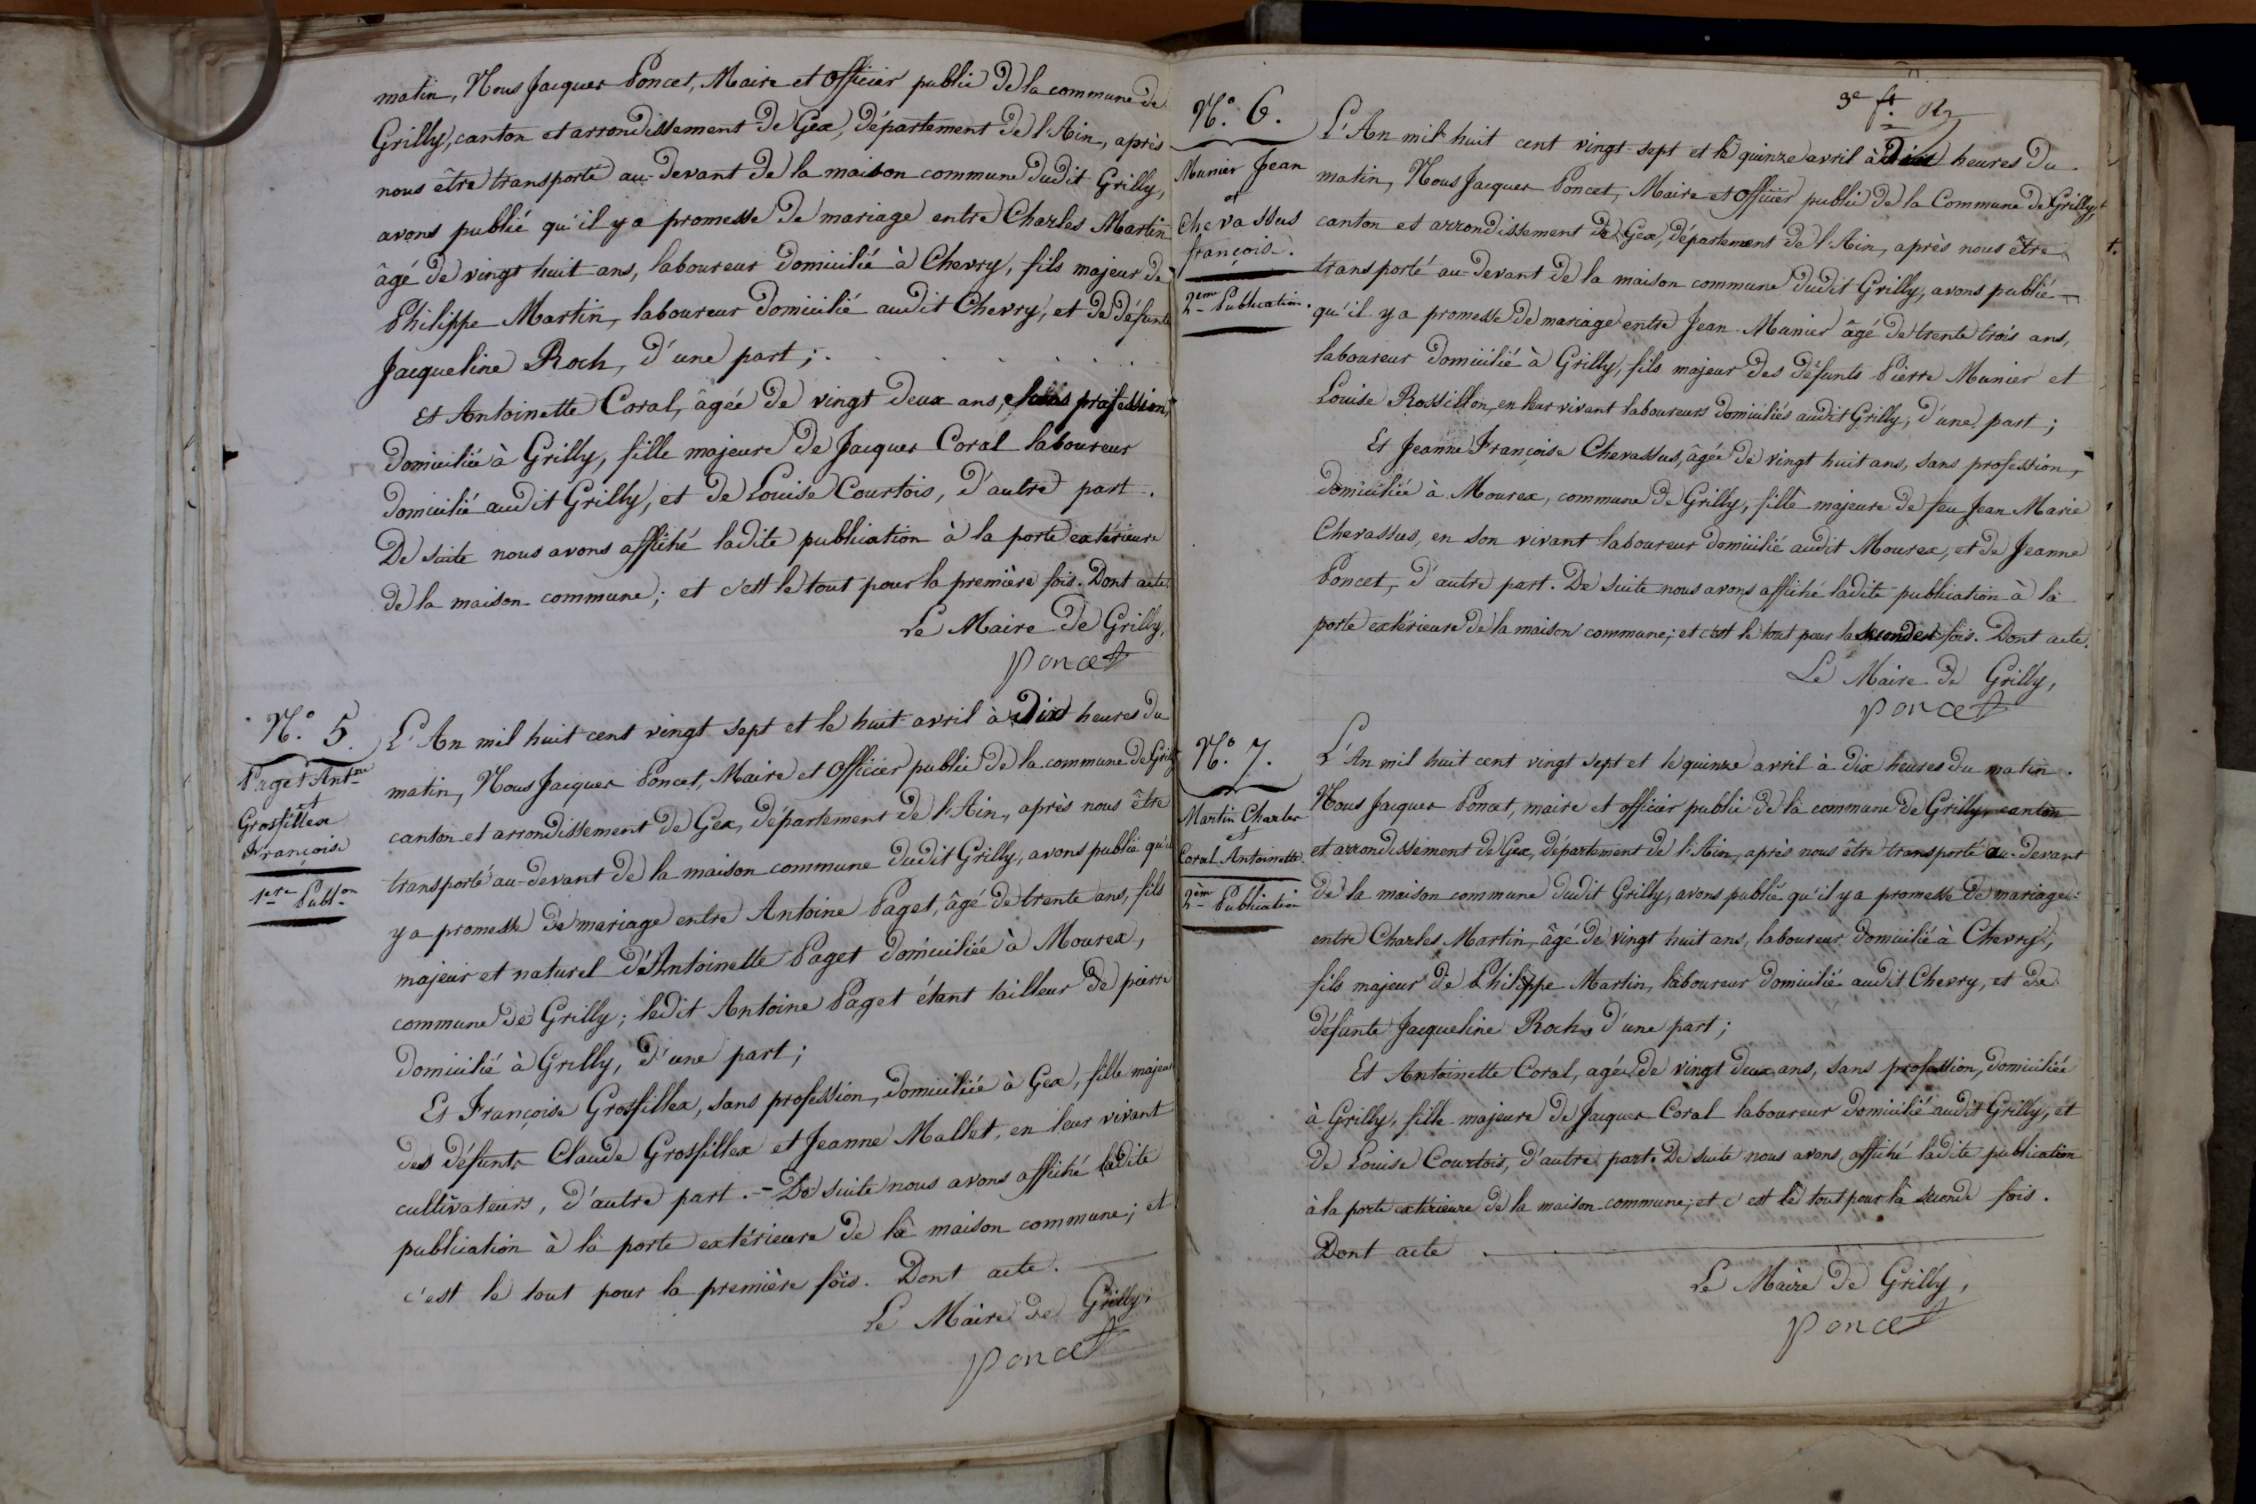 matin, Nous Jacques Poncet, Maire et officier public de la commune de
Grilly, canton et arrondissement de Gex, département de l'Ain, après
nous être transporté au-devant de la maison commune dudit Grilly,
avons publié qu'il y a promesse de mariage entre Charles Martin
âgé de vingt huit ans, laboureur domicilié à Chevry, fils majeur de
Philippe Martin, laboureur domicilié audit Chevry, et de défunte
Jacqueline Roch, d'une part; .
Et Antoinette Coral, âgée de vingt deux ans, sans profession,
domiciliée à Grilly, fille majeure de Jacques Coral laboureur
domicilié audit Grilly, et de Louise Courtois, d'autre part.
De suite nous avons affiché ladite publication à la porte extérieure
de la maison commune; et c'est le tout pour la première fois. Dont acte.
Le Maire de Grilly,
Poncet
N.º 5.
Paget Ant.ne
et
Grosfillex
Françoise
1.ere Publ.on
L'An mil huit cent vingt sept et le huit avril à Dix heures du
matin, Nous Jacques Poncet, Maire et Officier public de la commune de Grilly
canton et arrondissement de Gex, département de l'Ain, après nous être
transporté au-devant de la maison commune dudit Grilly, avons publié qu'il
y a promesse de mariage entre Antoine Paget, âgé de trente ans, fils
majeur et naturel d'Antoinette Paget domiciliée à Mourex,
commune de Grilly; ledit Antoine Paget étant tailleur de pierre
domicilié à Grilly, d'une part;
Et Françoise Grosfillex, sans profession, domiciliée à Gex, fille majeure
des défunts Claude Grosfillex et Jeanne Mallet, en leur vivant
cultivateurs, d'autre part. - De suite nous avons affiché ladite
publication à la porte extérieure de la maison commune; et
c'est le tout pour la première fois. Dont acte.
Le Maire de Grilly,
Poncet
3e f.t
N.º 6.
Munier Jean
et
Chevassus
françoise.
2.em Publication.
L'An mil huit cent vingt-sept et le quinze avril à Dix heures du
matin, Nous Jacques Poncet, Maire et Officier public de la Commune de Grilly,
canton et arrondissement de Gex, département de l'Ain, après nous être
transporté au-devant de la maison commune dudit Grilly, avons publié
qu'il y a promesse de mariage entre Jean Munier âgé de trente trois ans,
laboureur domicilié à Grilly, fils majeur des défunts Pierre Munier et
Louise Rossillon, en leur vivant laboureurs domiciliés audit Grilly, d'une part;
Et Jeanne Françoise Chevassus, âgée de vingt huit ans, sans profession,
domiciliée à Mourex, commune de Grilly, fille majeure de feu Jean Marie
Chevassus, en son vivant laboureur domicilié audit Mourex, et de Jeanne
Poncet, d'autre part. De suite nous avons affiché ladite publication à la
porte extérieure de la maison commune; et c'est le tout pour la seconde fois. Dont acte.
Le Maire de Grilly,
Poncet
N.º 7.
Martin Charles
et
Coral Antoinette.
2.em Publication
L'An mil huit cent vingt sept et le quinze avril à dix heures du matin.
Nous Jacques Poncet, maire et officier public de la commune de Grilly, canton
et arrondissement de Gex, département de l'Ain, après nous être transporté au-devant
de la maison commune dudit Grilly, avons publié qu'il y a promesse de mariage
entre Charles Martin, âgé de vingt huit ans, laboureur domicilié à Chevry,
fils majeur de Philippe Martin, laboureur domicilié audit Chevry, et de
défunte Jacqueline Roch, d'une part;
Et Antoinette Coral, agée de vingt deux ans, sans profession, domiciliée
à Grilly, fille majeure de Jacques Coral laboureur domicilié audit Grilly, et
de Louise Courtois, d'autre part. De suite nous avons affiché ladite publication
à la porte extérieure de la maison commune; et c'est le tout pour la seconde fois.
Dont acte
Le Maire de Grilly,
Poncet